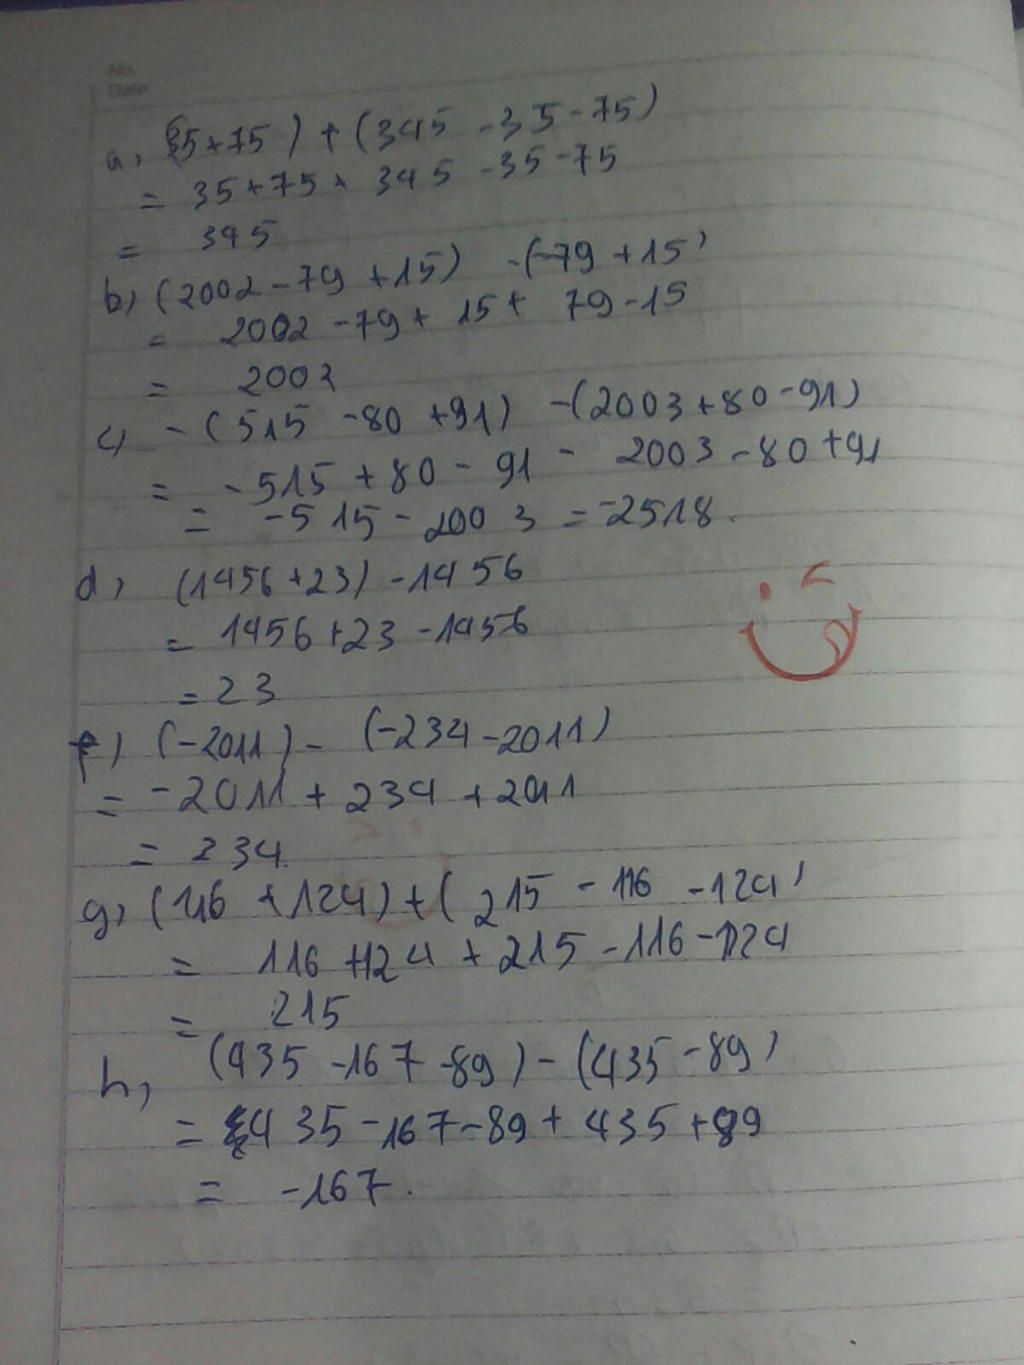 No.
Date
a, (35+75) + (345 -35-75)
= 35+75 + 345 -35-75
= 345
b, (2002-79 +15) -(-79 +15)
= 2002 -79 + 15 + 79-15
= 2002
c, -(515 -80 +91) -(2003+80-91)
= -515 +80 - 91 - 2003 -80 +91
= -515-2003 = -2518.
d, (1456+23) -1456
= 1456 +23 -1456
= 23
f, (-2011) - (-234-2011)
= -2011 + 234 + 2011
= 234.
g, (116 +124) + ( 215 - 116 -124)
= 116 +124 + 215 -116-124
= 215
h, (435 -167 -89) - (435 -89)
= 435 -167 -89 + 435 +89
= -167.